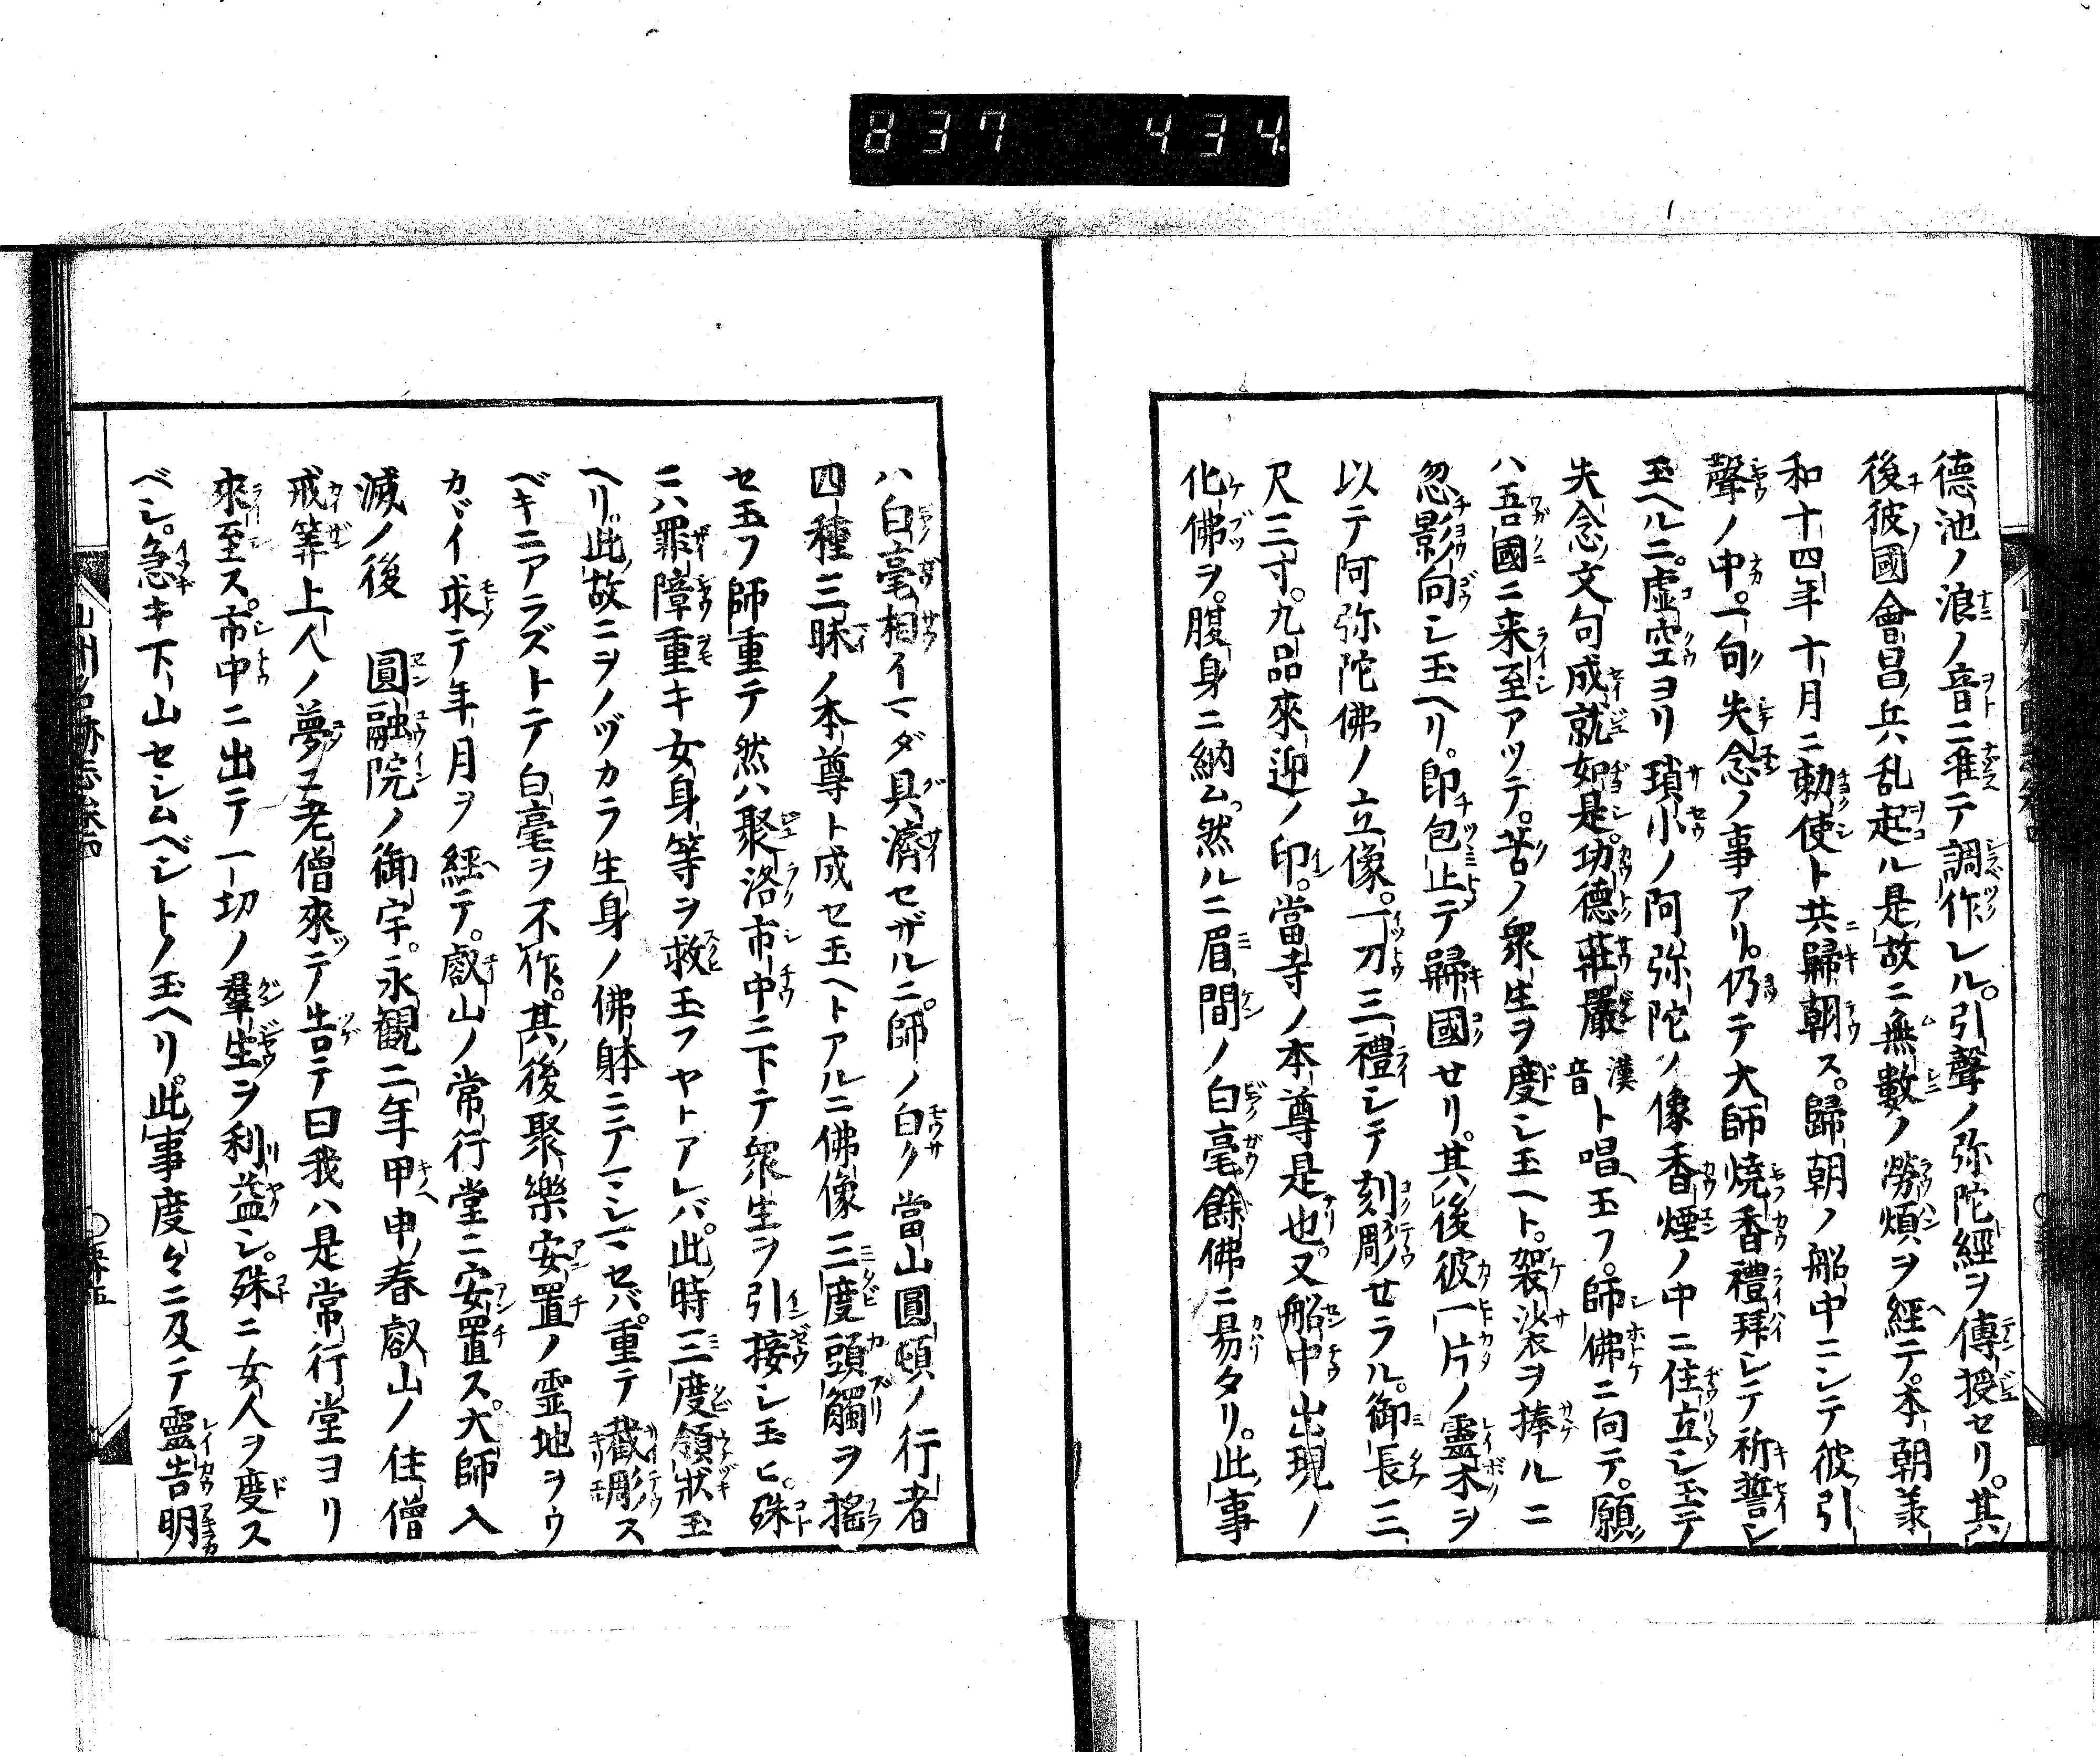 837 434
德池ノ浪ノ音ニ准テ調作レル。引聲ノ弥陀經ヲ傳授セリ。其
後彼國會昌ノ兵乱起ル是故ニ無數ノ勞煩ヲ經テ。本朝承
和十四年十月ニ勅使ト共歸朝ス。歸朝ノ船中ニシテ彼引
聲ノ中。一句失念ノ事アリ。仍テ大師燒香禮拜シテ祈誓シ
玉ヘルニ。虚空ヨリ瑣小ノ阿弥陀ノ像香煙ノ中ニ住立シ玉テ
失念ノ文句成就如是。功德莊嚴漢音ト唱玉フ。師佛ニ向テ。願
ハ吾國ニ来至アツテ。苦ノ衆生ヲ度シ玉ヘト。袈裟ヲ捧ルニ
忽影向シ玉ヘリ。即包止テ歸國セリ。其後彼一片ノ靈木ヲ
以テ阿弥陀佛ノ立像。一刀三禮シテ刻彫セラル。御長三
尺三寸。九品來迎ノ印。當寺ノ本尊是也。又船中出現ノ
化佛ヲ。腹身ニ納ム。然ルニ眉間ノ白毫餘佛ニ易タリ。此事
ハ白毫相イマダ具濟セザルニ。師ノ白ク當山圓頓ノ行者
四種三昧ノ本尊ト成セ玉ヘトアルニ佛像三度頭髑ヲ搖
セ玉フ師重テ然ハ聚洛市中ニ下テ衆生ヲ引接シ玉ヒ。殊
ニハ罪障重キ女身等ヲ救玉フヤトアレバ。此時三度領狀玉
ヘリ。此故ニヲノヅカラ生身ノ佛躰ニテマシマセバ。重テ截彫ス
ベキニアラズトテ白毫ヲ不作。其後聚樂安置ノ霊地ヲウ
カヾイ求テ年月ヲ經テ。叡山ノ常行堂ニ安置ス。大師入
滅ノ後 圓融院ノ御宇。永観二年甲申春叡山ノ住僧
戒筭上人ノ夢ニ老僧來テ告テ曰我ハ是常行堂ヨリ
來至ス。市中ニ出テ一切ノ羣生ヲ利益シ。殊ニ女人ヲ度ス
ベシ。急キ下山セシムベシトノ玉ヘリ。此事度々ニ及テ靈告明
山州名跡志卷四